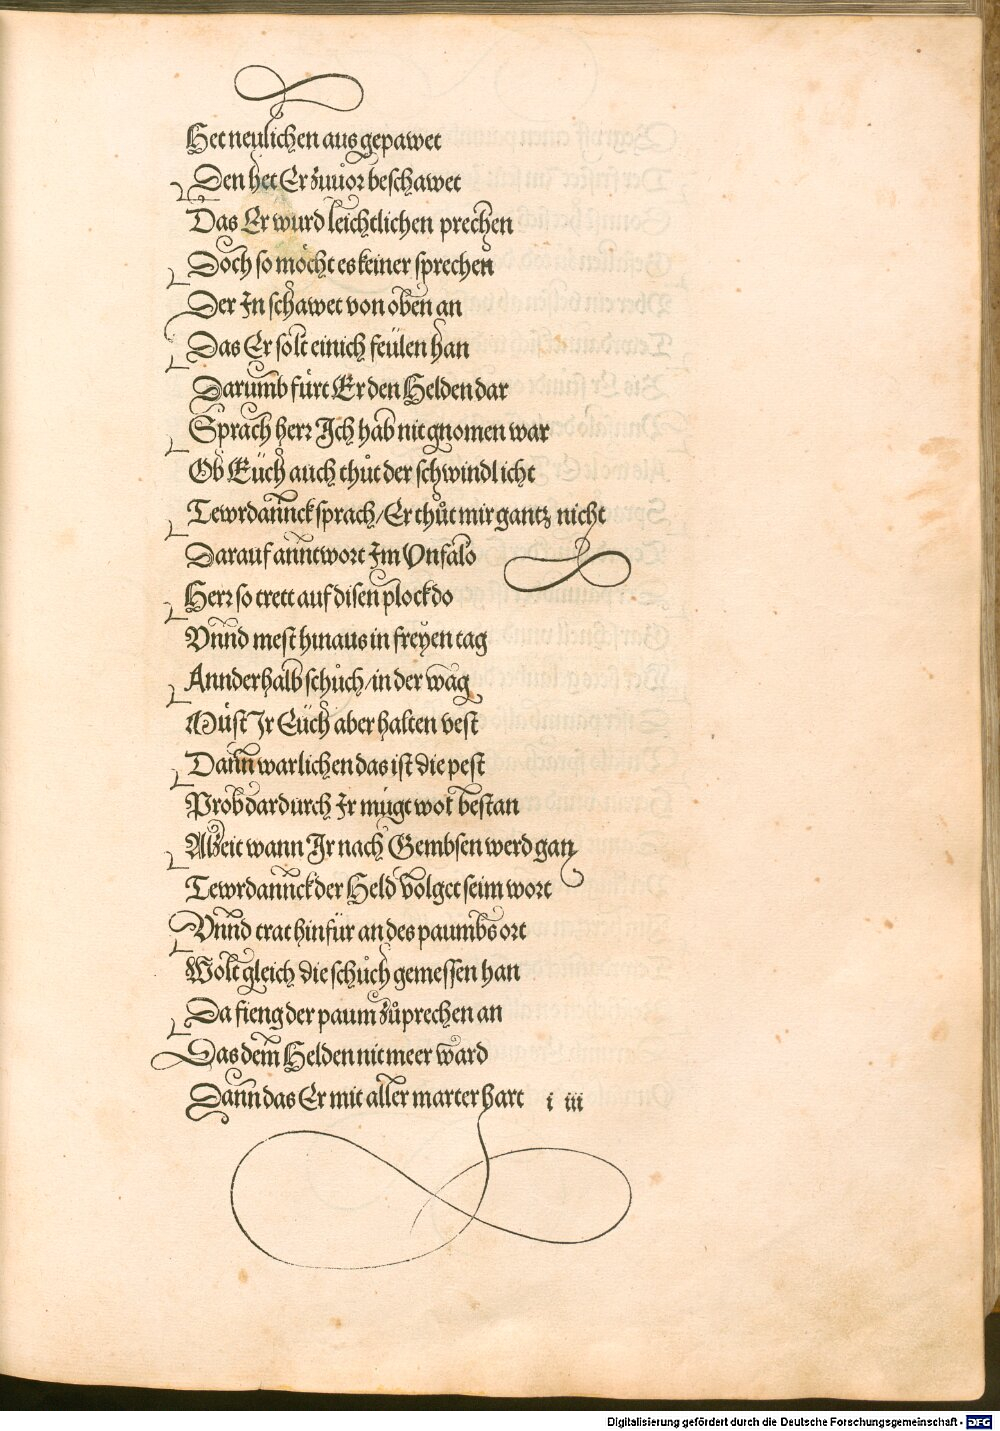 Het neulichen aus gepawet
Den het Er zuuor beschawet
Das Er wurd leichtlichen prechen
Doch so möcht es keiner sprechen
Der In schawet von oben an
Das Er solt einich feülen han
Darumb fürt Er den Helden dar
Sprach herr Ich hab nit gnomen war
Ob Eüch auch thůt der schwindl icht
Tewrdannck sprach/ Er thůt mir gantz nicht
Darauf anntwort Im Vnfalo
Herr so trett auf disen plock do
Vnnd mest hinaus in freyen tag
Annderhalb schůch/ in der wag
Můst Ir Eüch aber halten vest
Dann warlichen das ist die pest
Prob dardurch Ir mügt wol bestan
Alzeit wann Ir nach Gembsen werd gan
Tewrdannck der Held volget seim wort
Vnnd trat hinfür an des paumbs ort
Wolt gleich die schůch gemessen han
Da fieng der paum zůprechen an
Das dem Helden nit meer ward
Dann das Er mit aller marter hart i iii
Digitalisierung gefördert durch die Deutsche Forschungsgemeinschaft - DFG